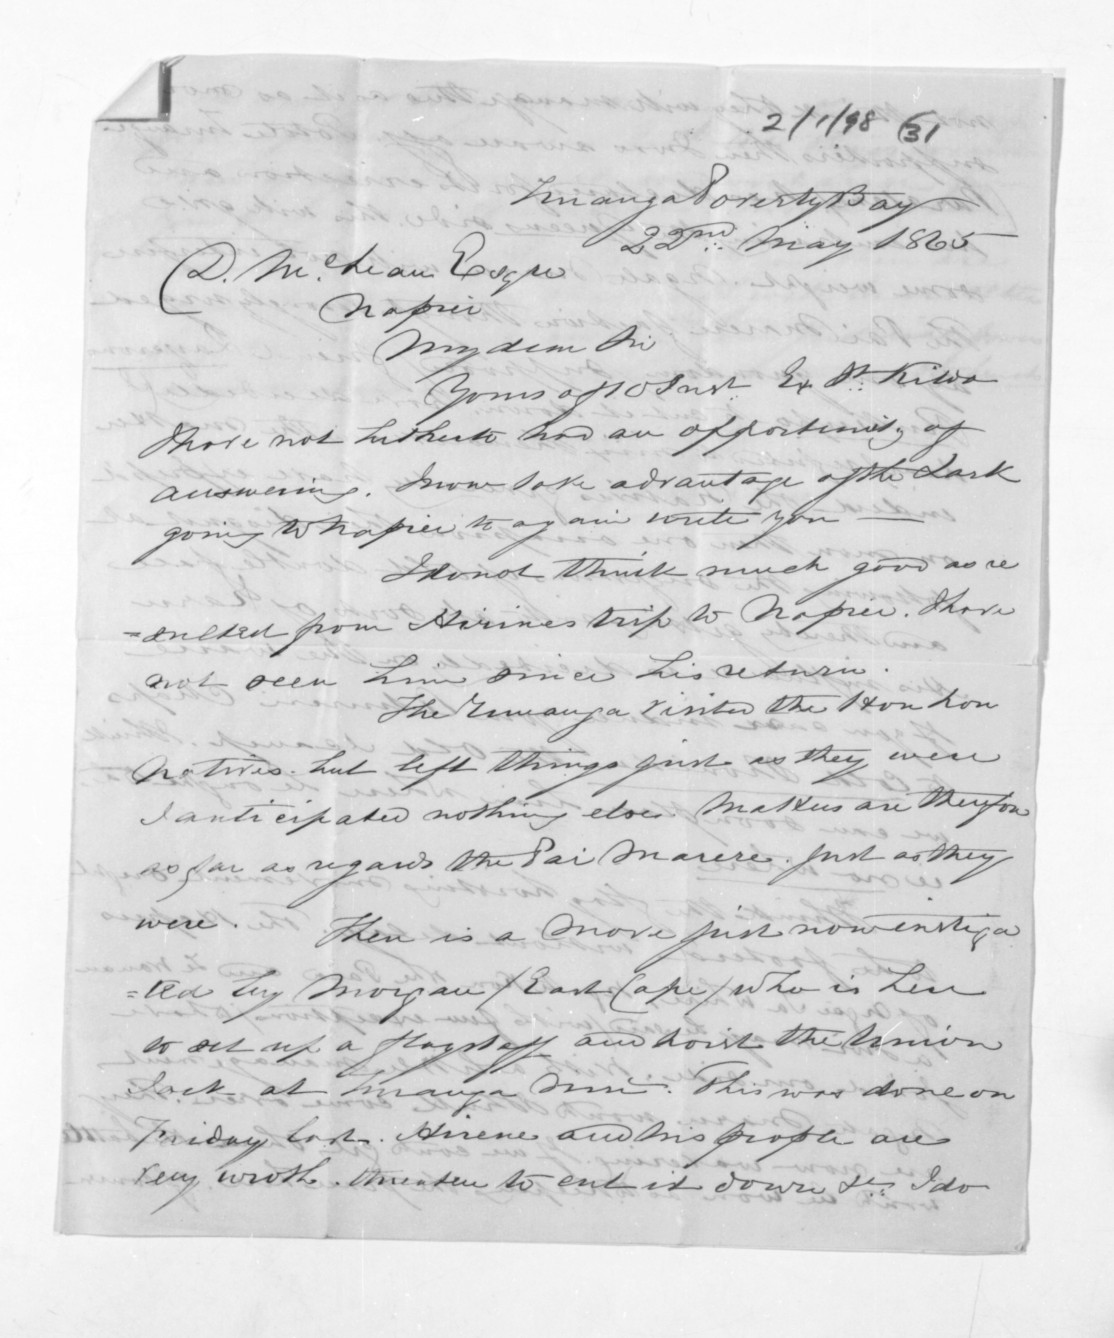 2/1/98 (31
Turanga Poverty Bay
22nd. May 1865
D. McLean Esqre
Napier
My dear Sir
Yours of 10 Inst. Ex St. Kilda
I have not hitherto had an opportunity of
answering. I now take advantage of the Lark
going to Napier to again write you —
I do not think much good as re
=sulted from Hirines trip to Napier. I have
not seen him since his return.
The Turanga visited the Hau hau
natives. but left things just as they were
I anticipated nothing else. Matters are therefore
so far as regards the Pai Marere. just as they
were.
There is a move just now instiga
=ted by Morgan /East Cape/ who is here
to set up a flagstaff and hoist the Union
Jack at Turanga Nui. This was done on
Friday last. Hirene and his people are
very wroth. threaten to cut it down &c. I do